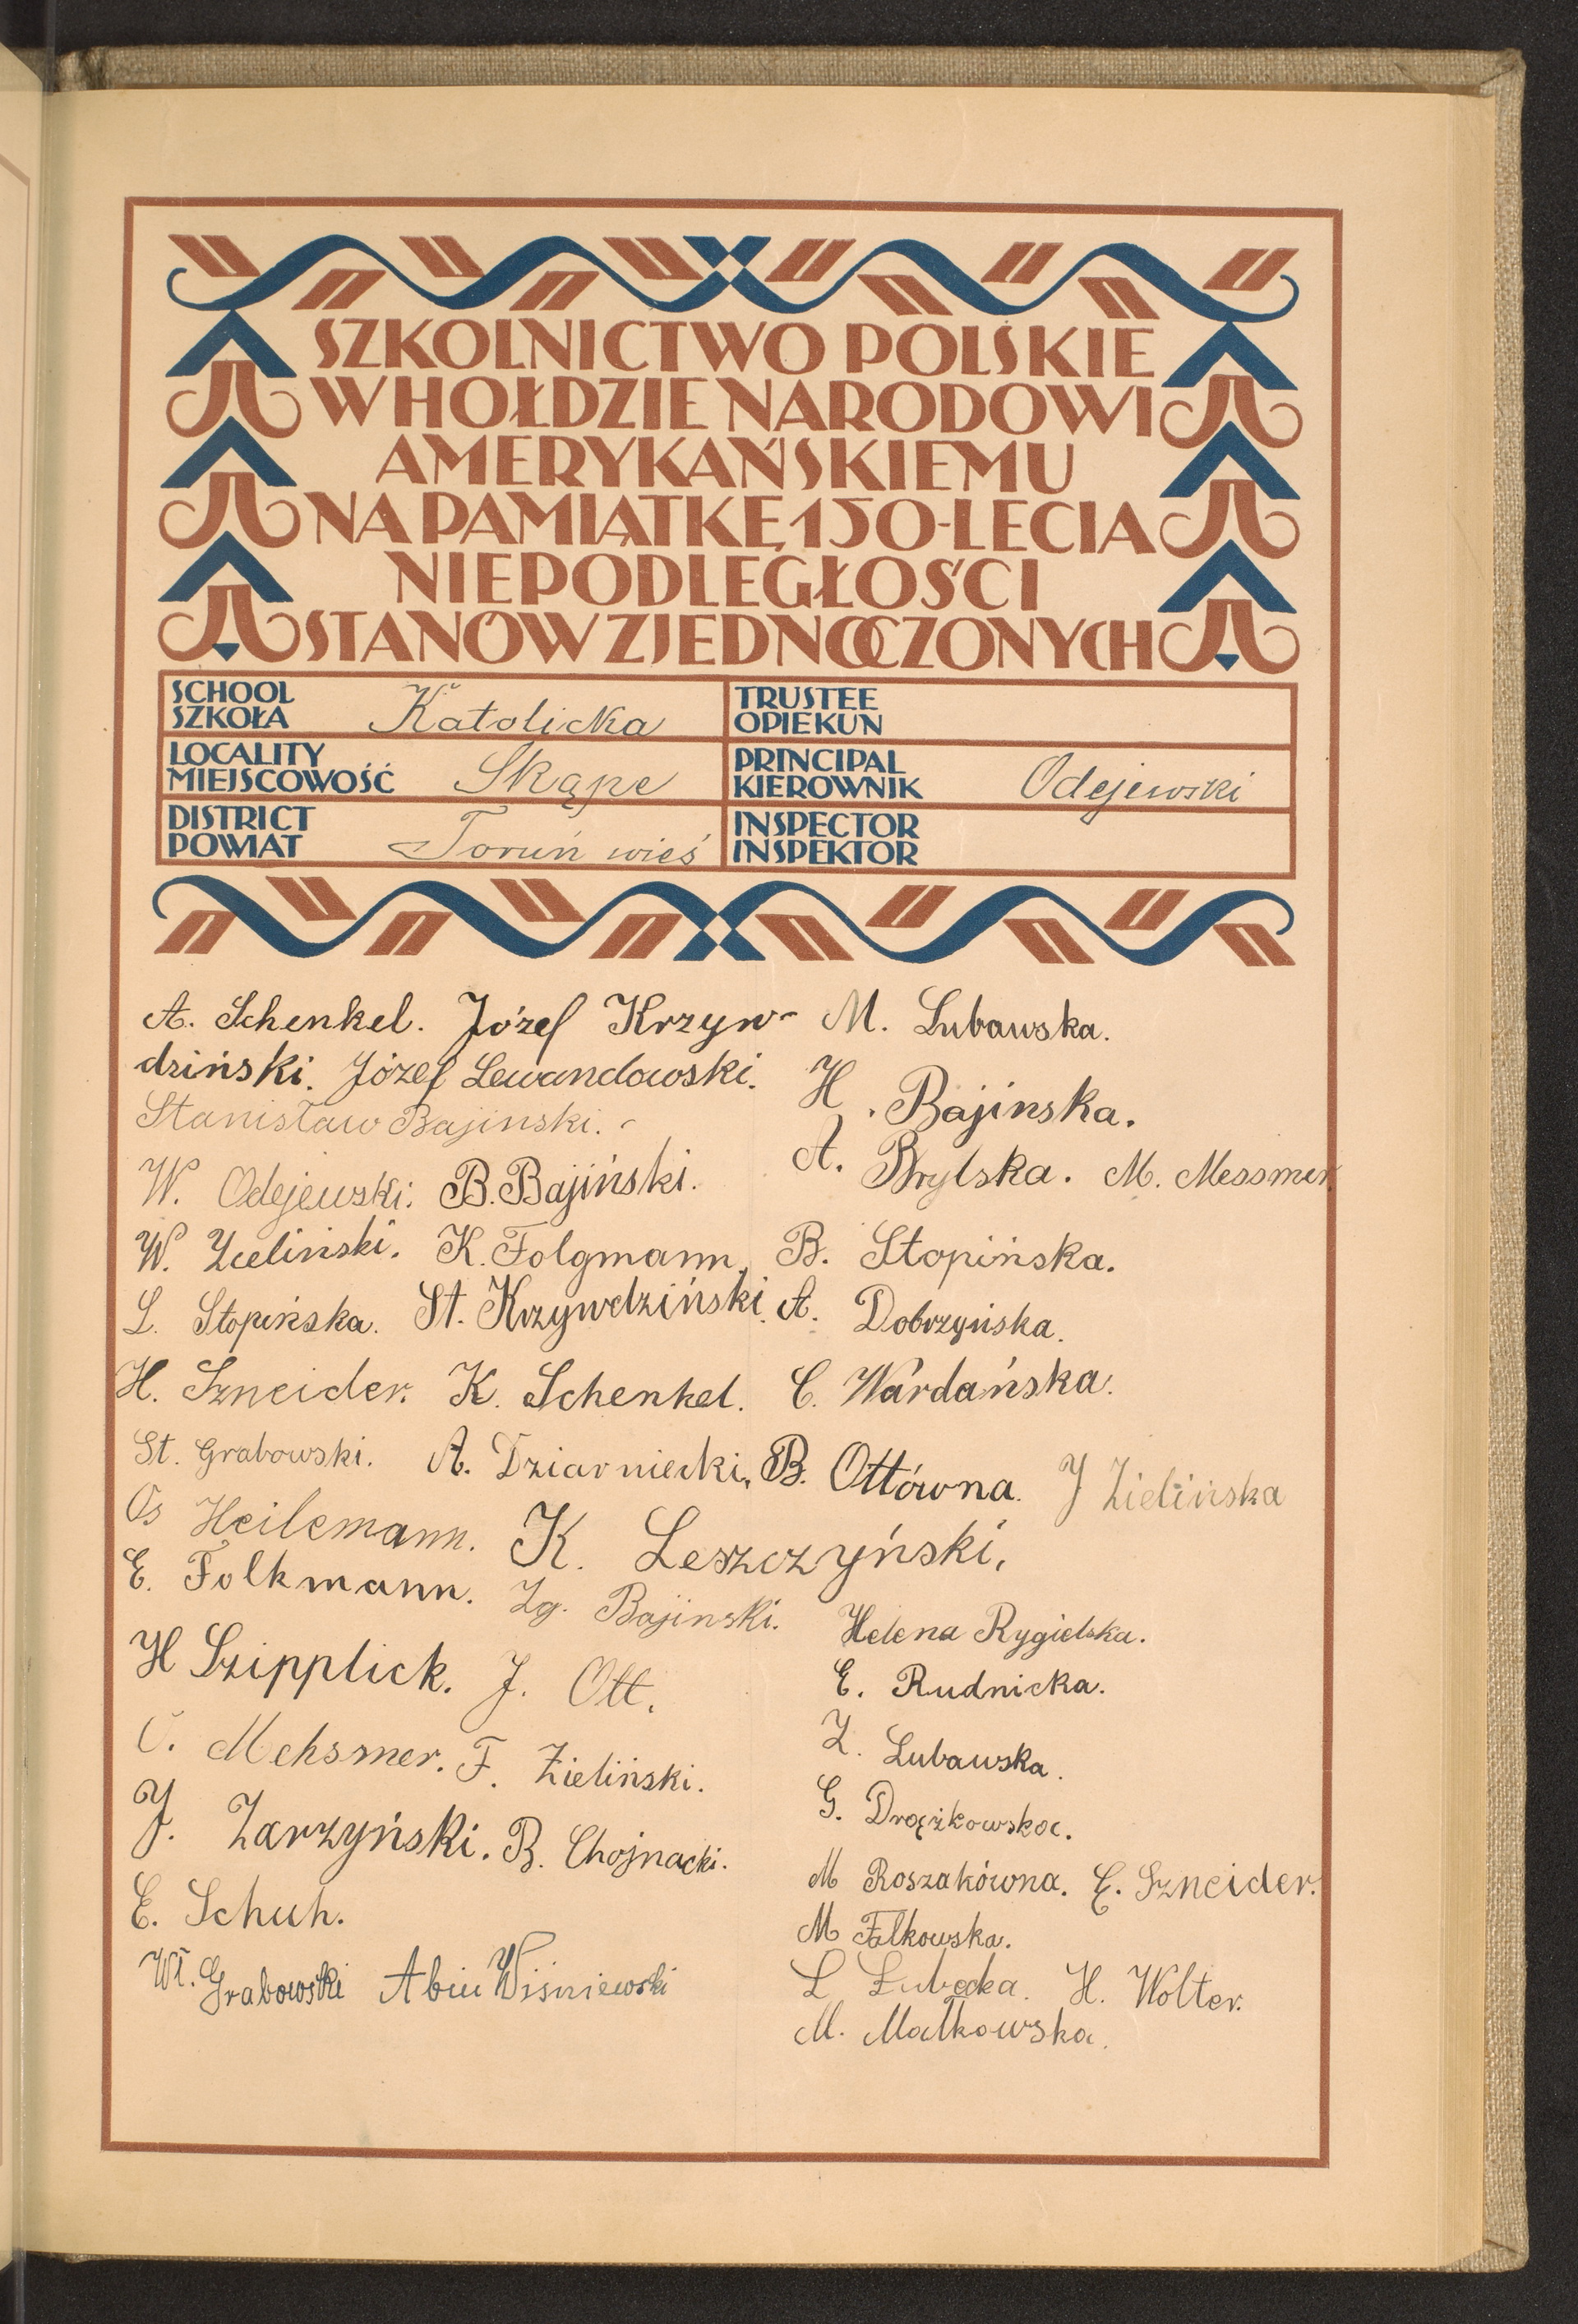 SZKOLNICTWO POLSKIE
W HOŁDZIE NARODOWI
AMERYKAŃSKIEMU
NA PAMIĄTKĘ 150-LECIA
NIEPODLEGŁOŚCI
STANÓW ZJEDNOCZONYCH
SCHOOL
SZKOŁA Katolicka
LOCALITY
MIEJSCOWOŚĆ Skąpe
DISTRICT
POWIAT Toruń wieś
TRUSTEE
OPIEKUN
PRINCIPAL
KIEROWNIK Odejewski
INSPECTOR
INSPEKTOR
A. Schenkel. Józef Krzyw-
dziński. Józef Lewandowski.
Stanisław Bajinski.
W. Odejewski. B. Bajiński.
W. Zieliński. K. Folgmann,
L. Stopińska. St. Krzywdziński.
H. Szneider. K. Schenkel.
St. Grabowski. A. Dziarniecki,
Os Heilemann. K. Leszczyński,
E. Folkmann. Zg. Bajinski.
H Szipplick. J. Ott.
O. Mehsmer. F. Zieliński.
J. Zarzyński. B. Chojnacki.
E. Schuh.
Wł. Grabowski Wiśniewski
M. Lubawska.
H. Bajinska.
A. Brylska. M. Messmer.
B. Stopińska.
A. Dobrzyńska.
C. Wardańska.
B. Ottówna. J Zielińska
Helena Rygielska.
E. Rudnicka.
Z. Lubawska.
G. Drążkowska.
M Roszakówna. E. Szneider.
M Falkowska.
L Łubecka. H. Wolter.
M. Małkowska.